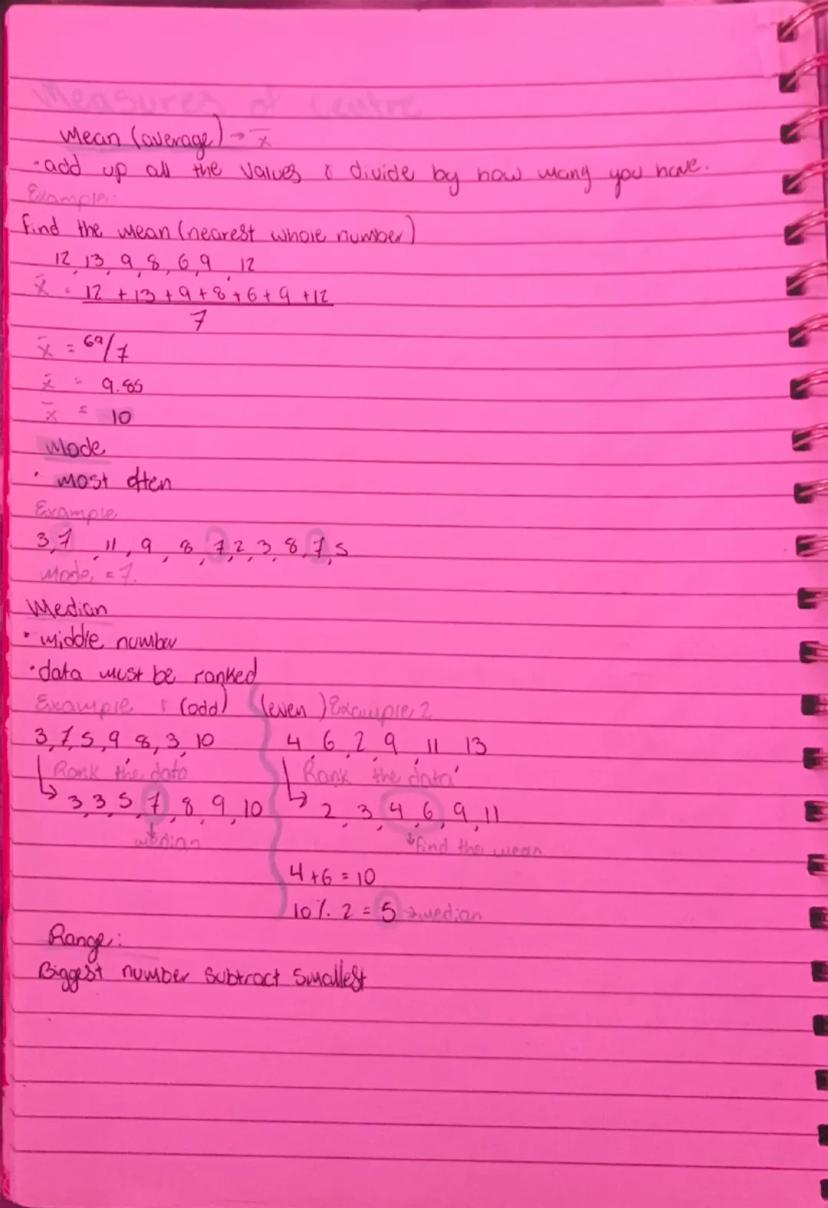 Measures of Centre
Mean (average) → x̄
· add up all the values & divide by how many you have.
Example:
Find the mean (nearest whole number)
12, 13, 9, 8, 6, 9, 12
x̄ = 12 + 13 + 9 + 8 + 6 + 9 + 12
7
x̄ = 69/7
x̄ = 9.85
x̄ = 10
Mode
· most often
Example
3, 7, 11, 9, 8, 7, 2, 3, 8, 7, 5
Mode, = 7.
Median
· middle number
· data must be ranked
Example 1 (odd) (even) Example 2
3, 7, 5, 9, 8, 3, 10 4, 6, 2, 9, 11, 13
Rank the data Rank the data
↳ 3, 3, 5, 7, 8, 9, 10 ↳ 2, 3, 4, 6, 9, 11
↓ median ↓ find the mean
4 + 6 = 10
10 ÷ 2 = 5 → median
Range:
Biggest number subtract smallest